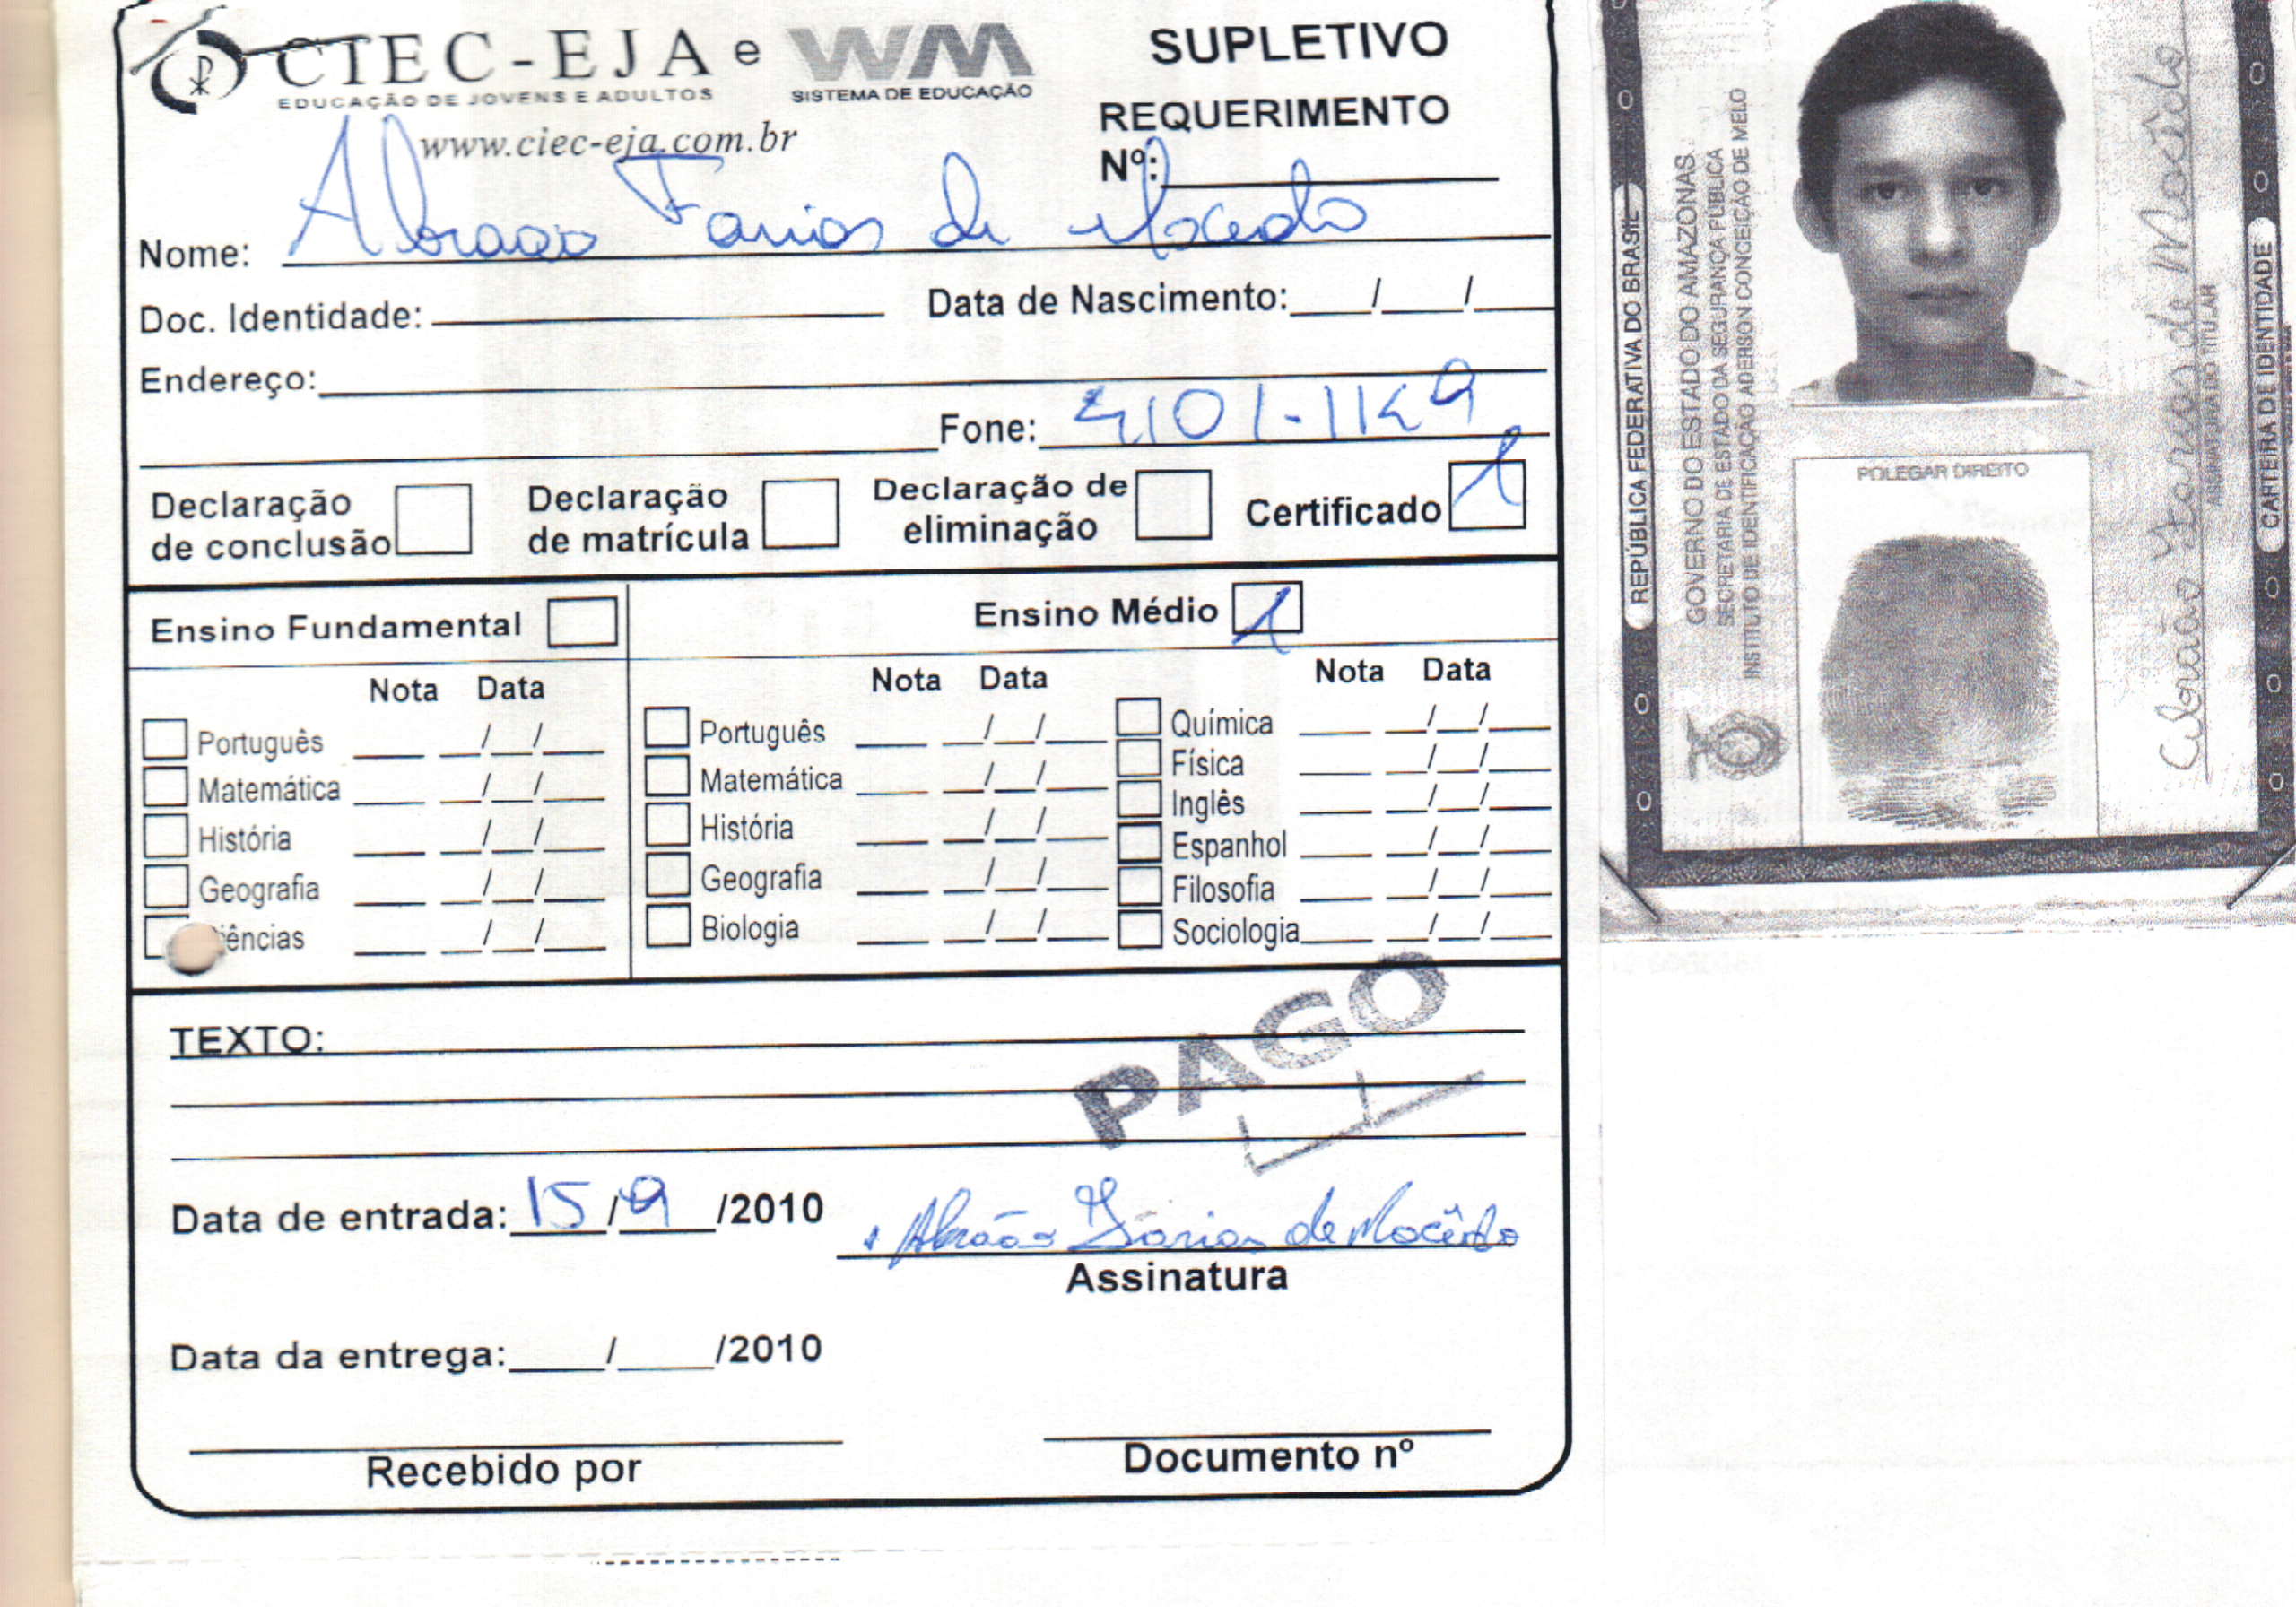 CIEC-EJA e WM
EDUCAÇÃO DE JOVENS E ADULTOS
SISTEMA DE EDUCAÇÃO
www.ciec-eja.com.br
SUPLETIVO
REQUERIMENTO
Nº:
Nome: Abraao Farias de Macedo
Doc. Identidade: Data de Nascimento: / /
Endereço:
Fone: 4101-11
Declaração de conclusão
Declaração de matrícula
Declaração de eliminação
Certificado
Ensino Fundamental
Nota Data
Português / /
Matemática / /
História / /
Geografia / /
ências / /
Ensino Médio
Nota Data
Português / /
Matemática / /
História / /
Geografia / /
Biologia / /
Nota Data
Química / /
Física / /
Inglês / /
Espanhol / /
Filosofia / /
Sociologia / /
TEXTO:
PAGO
Data de entrada: 15/9/2010
Abraão Farias de Macêdo
Assinatura
Data da entrega: / /2010
Recebido por
Documento nº
REPÚBLICA FEDERATIVA DO BRASIL
GOVERNO DO ESTADO DO AMAZONAS
SECRETARIA DE ESTADO DA SEGURANÇA PÚBLICA
INSTITUTO DE IDENTIFICAÇÃO ADERSON CONCEIÇÃO DE MELO
POLEGAR DIREITO
Abraão Farias de Macêdo
ASSINATURA DO TITULAR
CARTEIRA DE IDENTIDADE